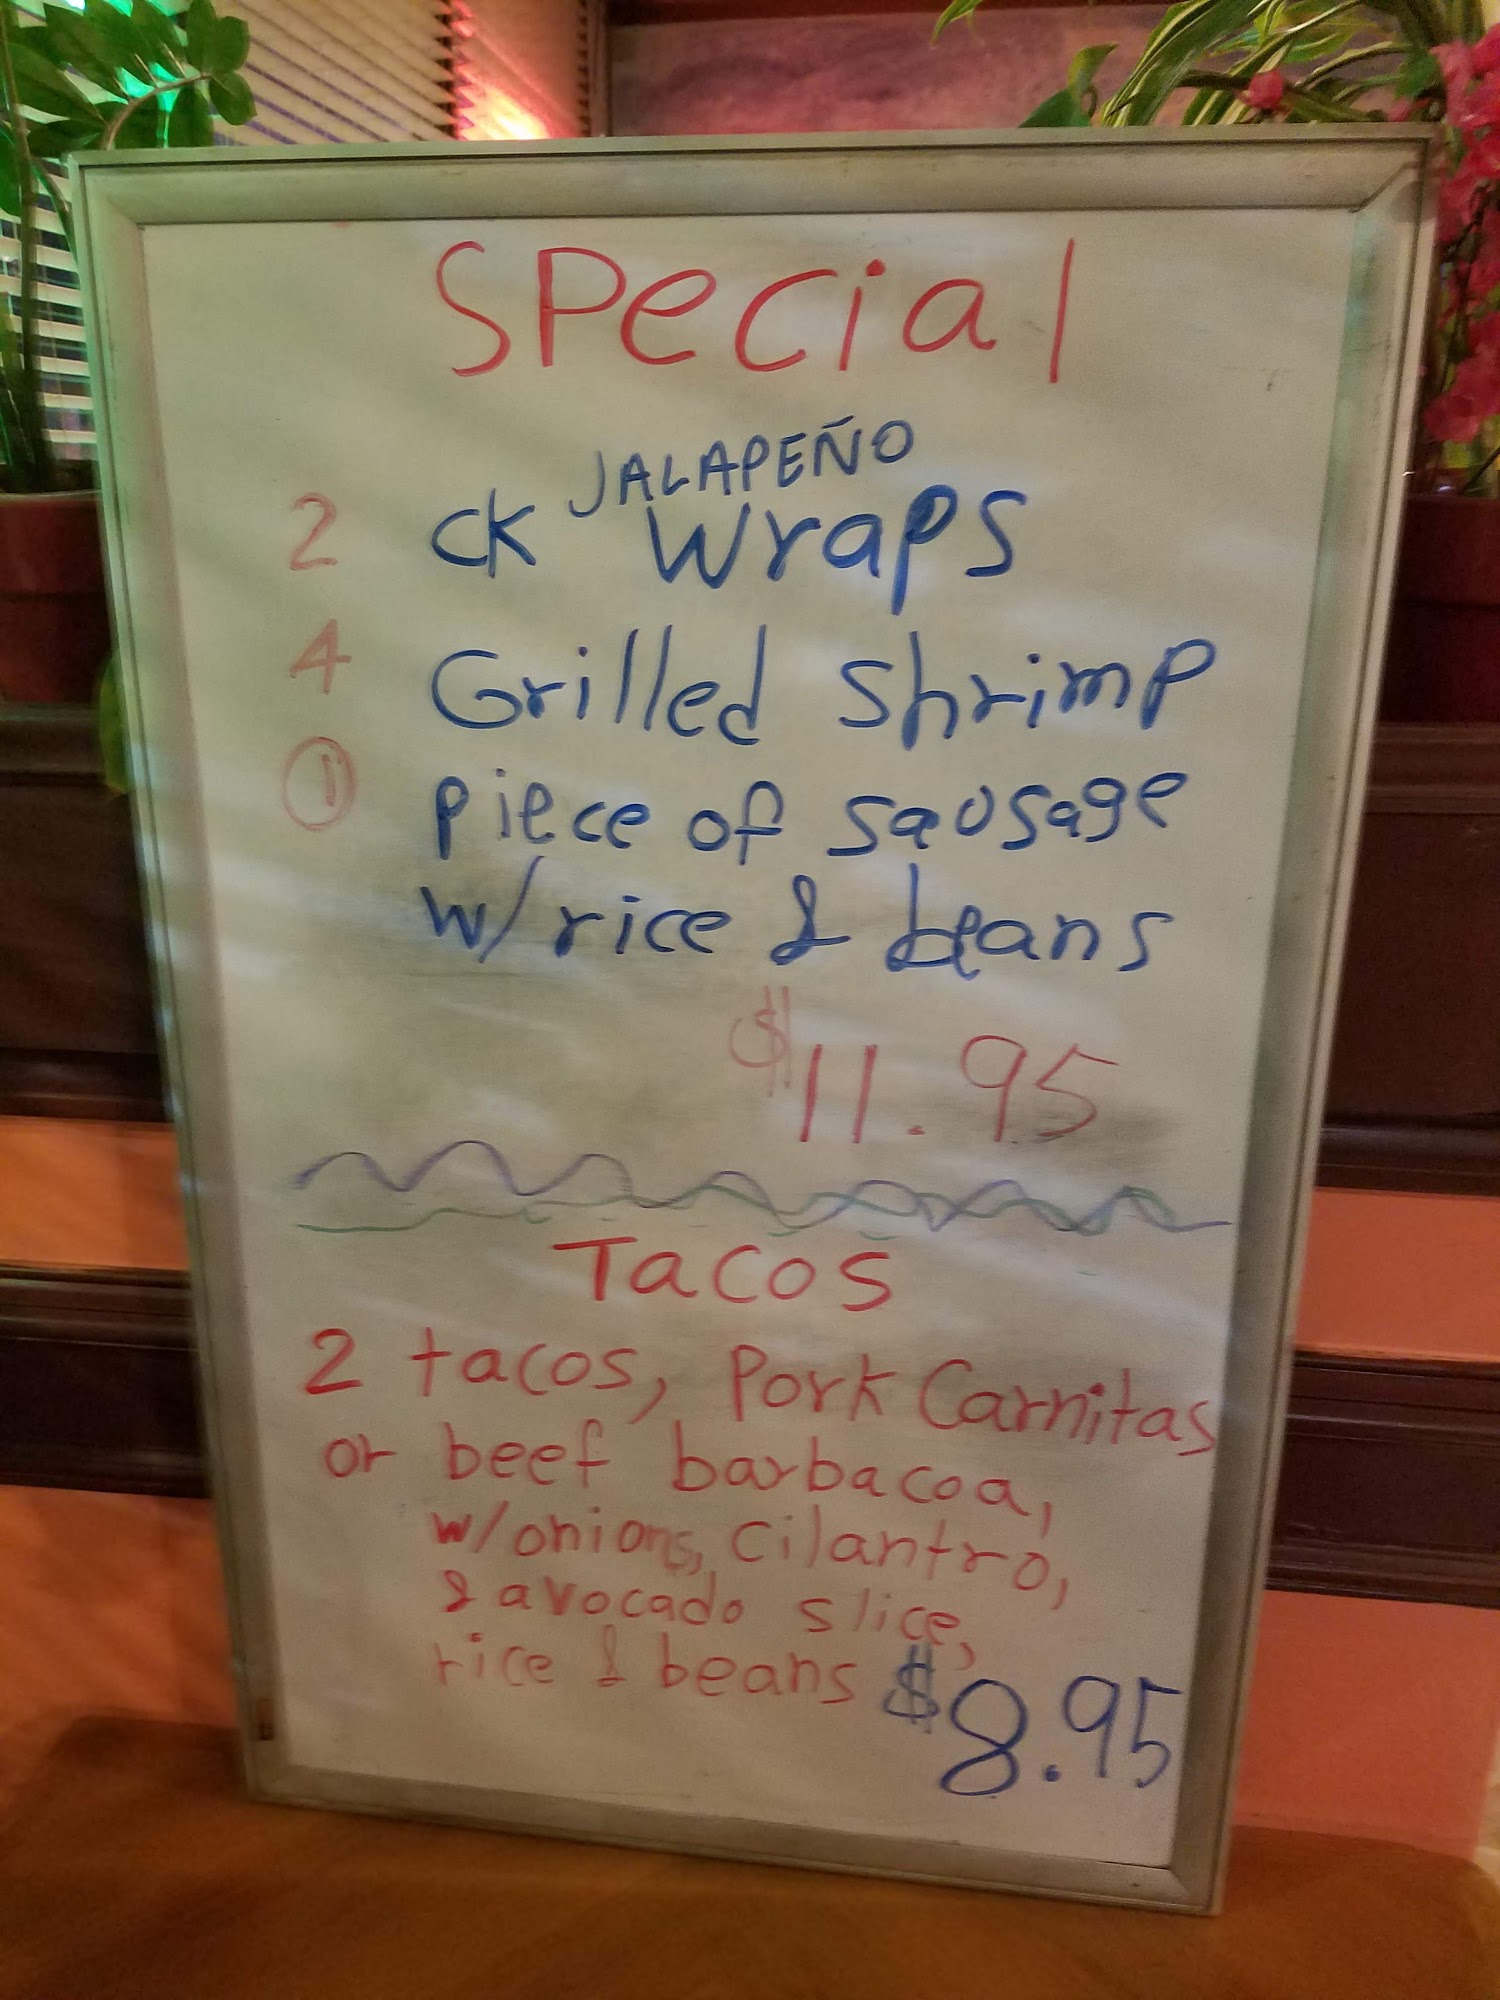 Special
JALAPEÑO
2 CK Wraps
4 Grilled shrimp
1 piece of sausage
w/rice & beans
$11.95
Tacos
2 tacos, Pork Carnitas
or beef barbacoa,
w/onions, cilantro,
& avocado slice,
rice & beans $8.95